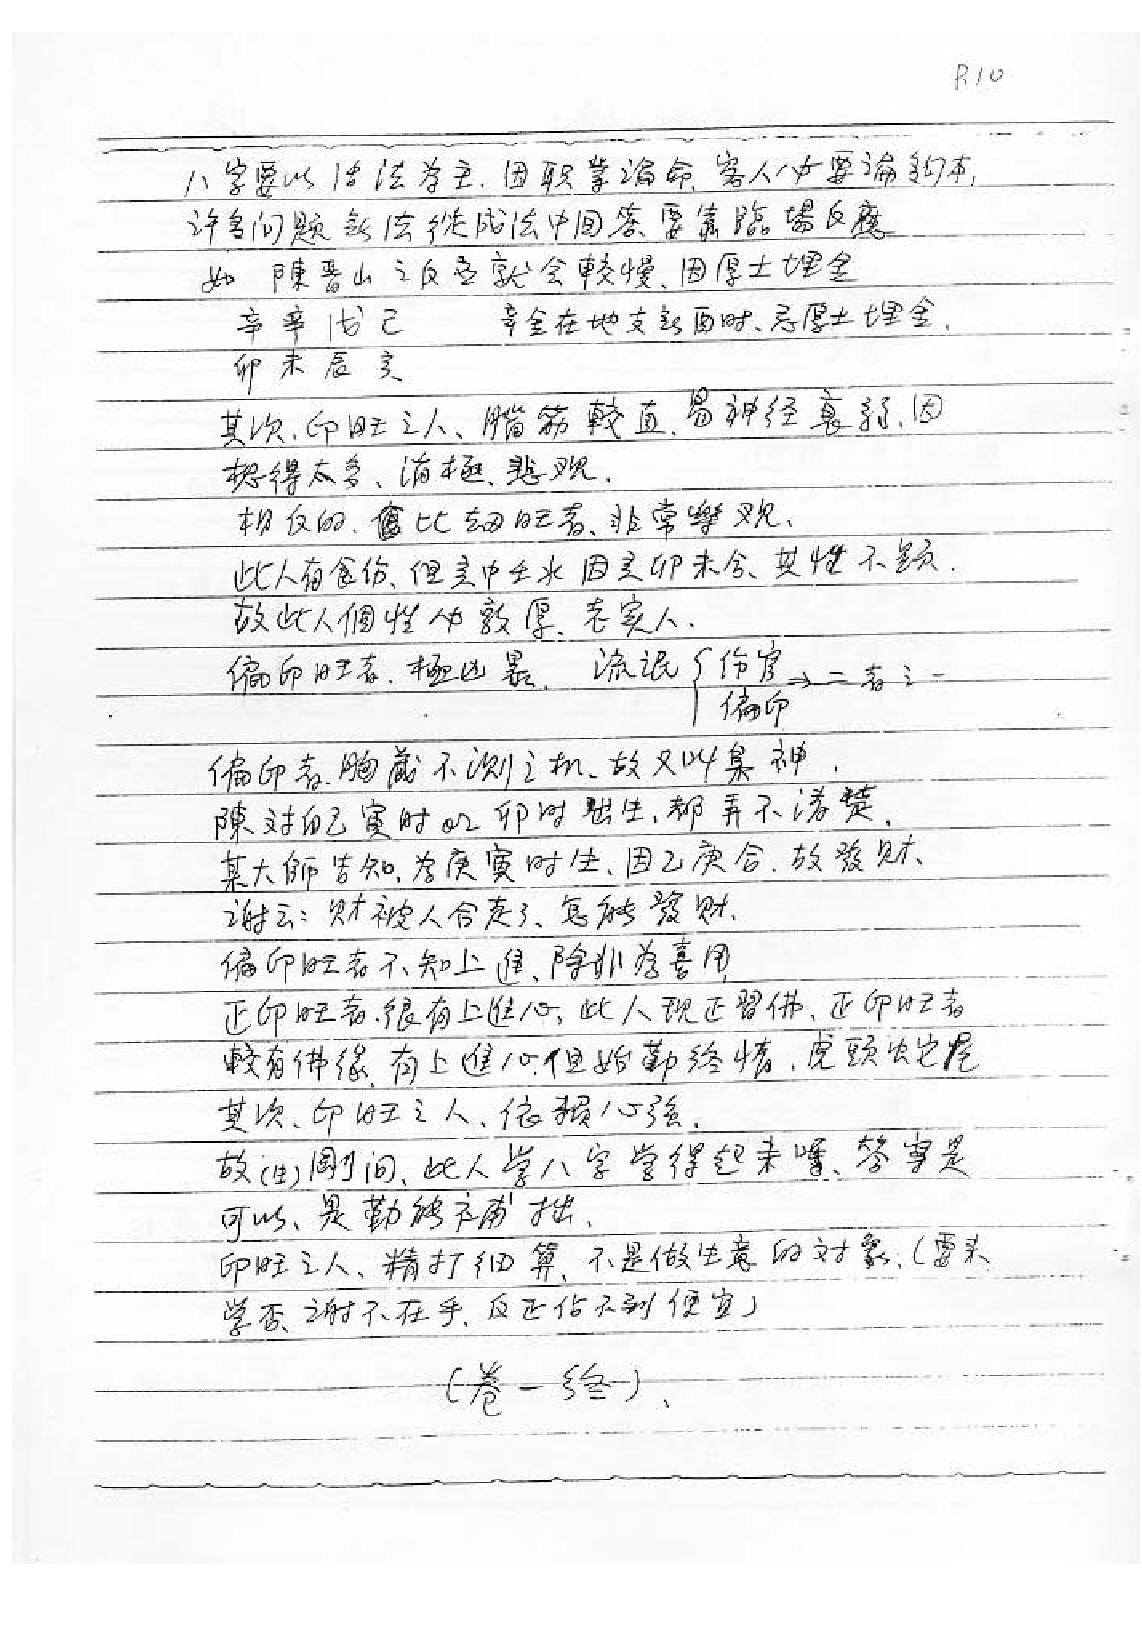 P.10
八字要以活法為主、因职業論命、客人必要論到本,
許多问题無法從成法中回答、要靠臨場反應
如 陳晋山之反应就会較慢、因厚土埋金
辛辛戊己 辛金在地支無面时、忌厚土埋金.
卯未辰亥
其次、印旺之人、腦筋較直、易神经衰弱、因
想得太多、消極、悲观.
相反的、比劫旺者、非常樂观、
此人有食伤、但亥中壬水因亥卯未合、其性不顕.
故此人個性必敦厚、老实人.
偏印旺者、極凶暴、 流氓{伤官 偏印 → 二者之一
偏印者、胸藏不测之机、故又叫梟神.
陳对自己寅时or卯时出生、都弄不清楚.
某大師告知、為庚寅时生、因乙庚合、故發财、
謝云:财被人合走了、怎能發财.
偏印旺者不知上進、除非為喜用
正印旺者、很有上進心、此人現正習佛、正印旺者
較有佛缘、有上進心、但始勤终惰、虎頭蛇尾
其次、印旺之人、依賴心強.
故(生)剛问、此人学八字学得起来嗎、答案是
可以、是勤能补拙、
印旺之人、精打细算、不是做生意的对象、(需来
学否、謝不在乎、反正佔不到便宜)
(卷一终)、